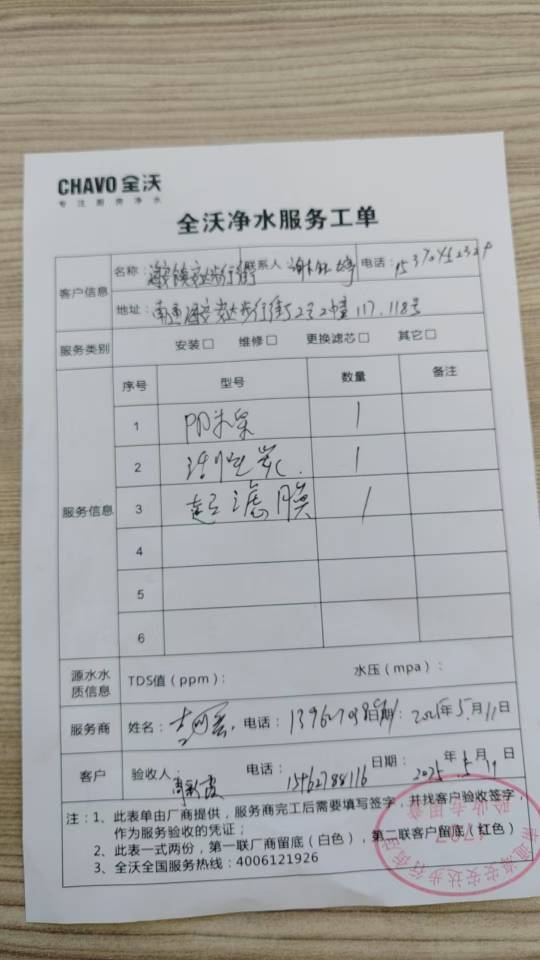 CHAVO 全沃
专注厨房净水
全沃净水服务工单
客户信息
名称： 联系人 电话：
地址：南通海安安达步行街52号2幢117.118号
服务类别 安装□ 维修□ 更换滤芯□ 其它□
服务信息
序号 型号 数量 备注
1 PP棉 1
2 活性炭 1
3 超滤膜 1
4
5
6
源水水质信息 TDS值（ppm）： 水压（mpa）：
服务商 姓名： 电话： 日期：2025年5月11日
客户 验收人： 电话：15962788116 日期：2025年5月19日
注：1、此表单由厂商提供，服务商完工后需要填写签字，并找客户验收签字，
作为服务验收的凭证；
2、此表一式两份，第一联厂商留底（白色），第二联客户留底（红色）
3、全沃全国服务热线：4006121926